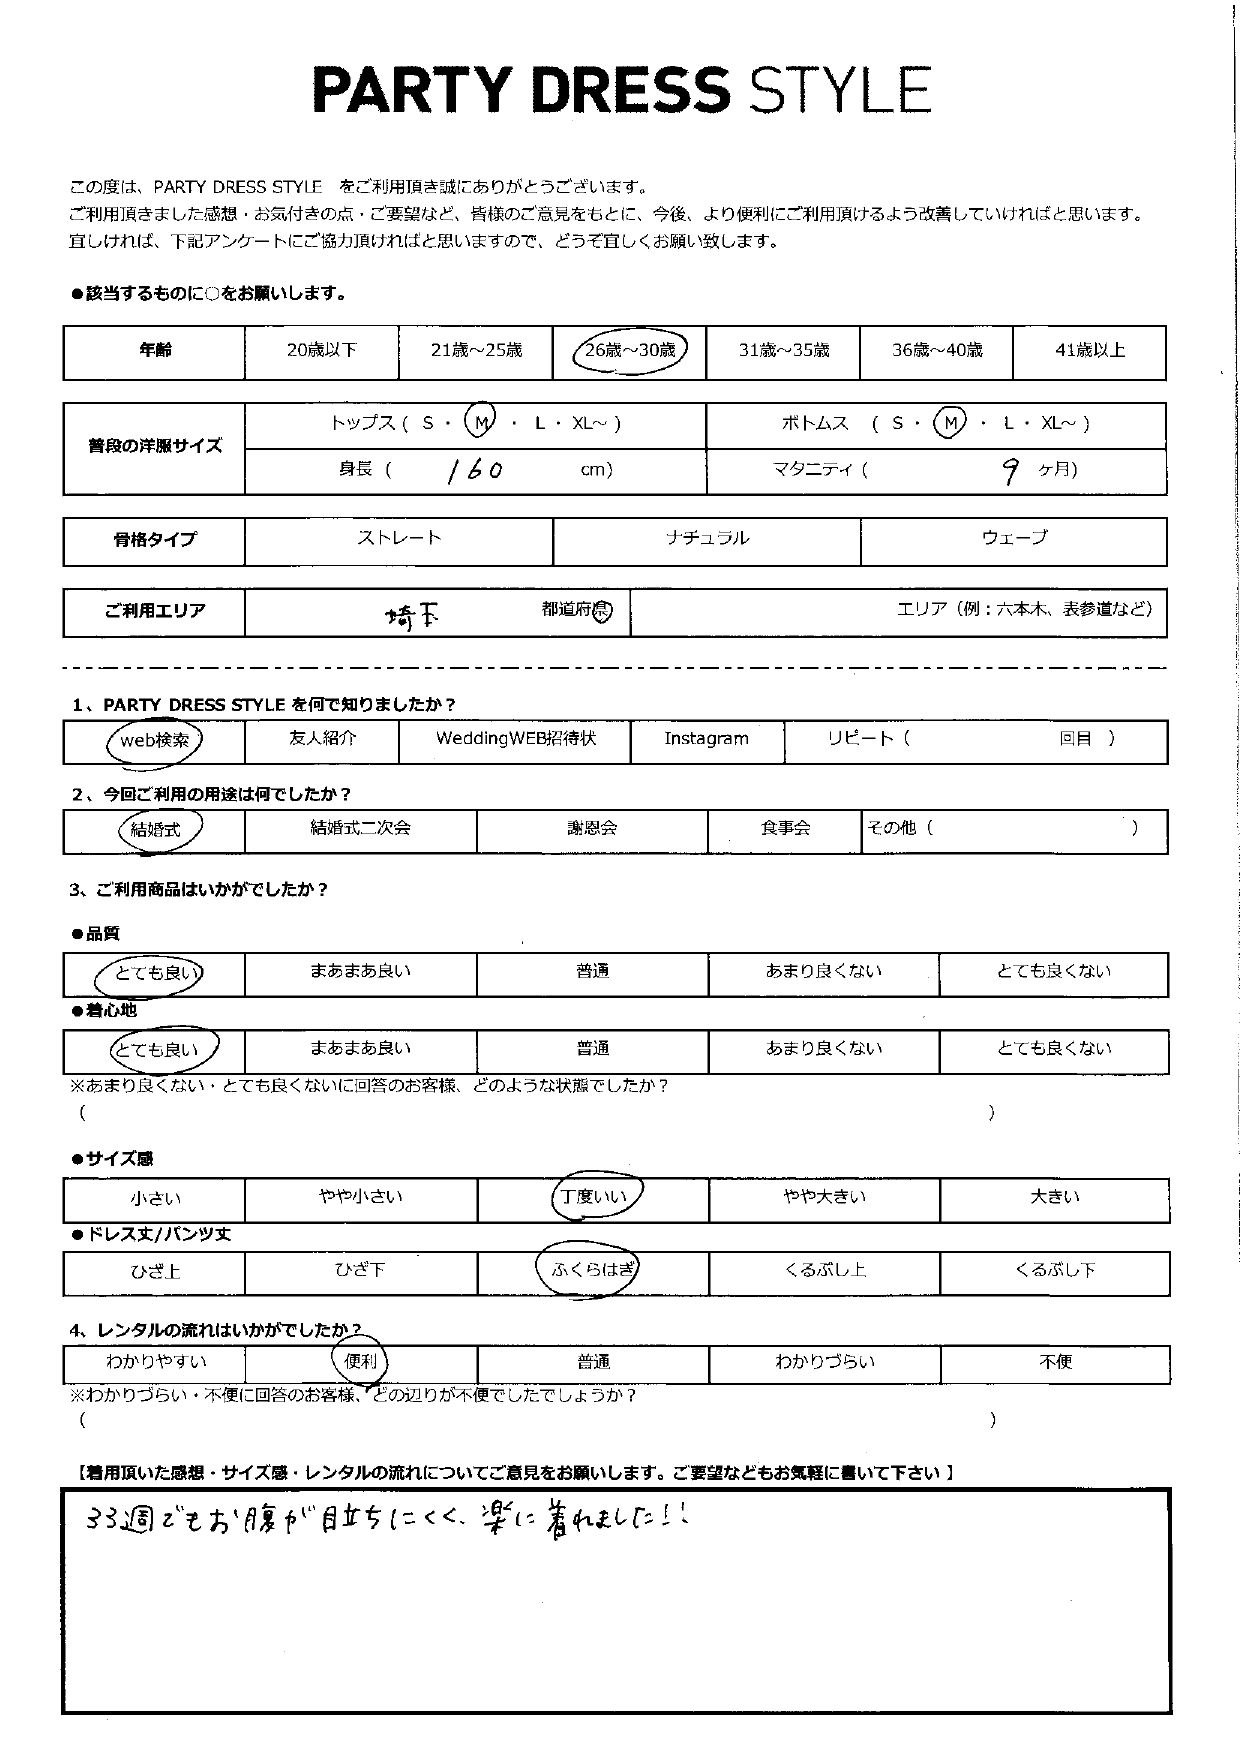 PARTY DRESS STYLE
この度は、PARTY DRESS STYLE　をご利用頂き誠にありがとうございます。
ご利用頂きました感想・お気付きの点・ご要望など、皆様のご意見をもとに、今後、より便利にご利用頂けるよう改善していければと思います。
宜しければ、下記アンケートにご協力頂ければと思いますので、どうぞ宜しくお願い致します。
●該当するものに○をお願いします。
年齢 20歳以下 21歳～25歳 26歳～30歳 31歳～35歳 36歳～40歳 41歳以上
普段の洋服サイズ トップス ( S ・ M ・ L ・ XL～ ) ボトムス ( S ・ M ・ L ・ XL～ )
身長 ( 160 cm) マタニティ ( 9 ヶ月)
骨格タイプ ストレート ナチュラル ウェーブ
ご利用エリア 埼玉 都道府県 エリア（例：六本木、表参道など）
1、PARTY DRESS STYLE を何で知りましたか？
web検索 友人紹介 WeddingWEB招待状 Instagram リピート ( 回目 )
2、今回ご利用の用途は何でしたか？
結婚式 結婚式二次会 謝恩会 食事会 その他 ( )
3、ご利用商品はいかがでしたか？
●品質
とても良い まあまあ良い 普通 あまり良くない とても良くない
●着心地
とても良い まあまあ良い 普通 あまり良くない とても良くない
※あまり良くない・とても良くないに回答のお客様、どのような状態でしたか？
( )
●サイズ感
小さい やや小さい 丁度いい やや大きい 大きい
●ドレス丈/パンツ丈
ひざ上 ひざ下 ふくらはぎ くるぶし上 くるぶし下
4、レンタルの流れはいかがでしたか？
わかりやすい 便利 普通 わかりづらい 不便
※わかりづらい・不便に回答のお客様、どの辺りが不便でしたでしょうか？
( )
【着用頂いた感想・サイズ感・レンタルの流れについてご意見をお願いします。ご要望などもお気軽に書いて下さい 】
33週でもお腹が目立ちにくく、楽に着れました！！